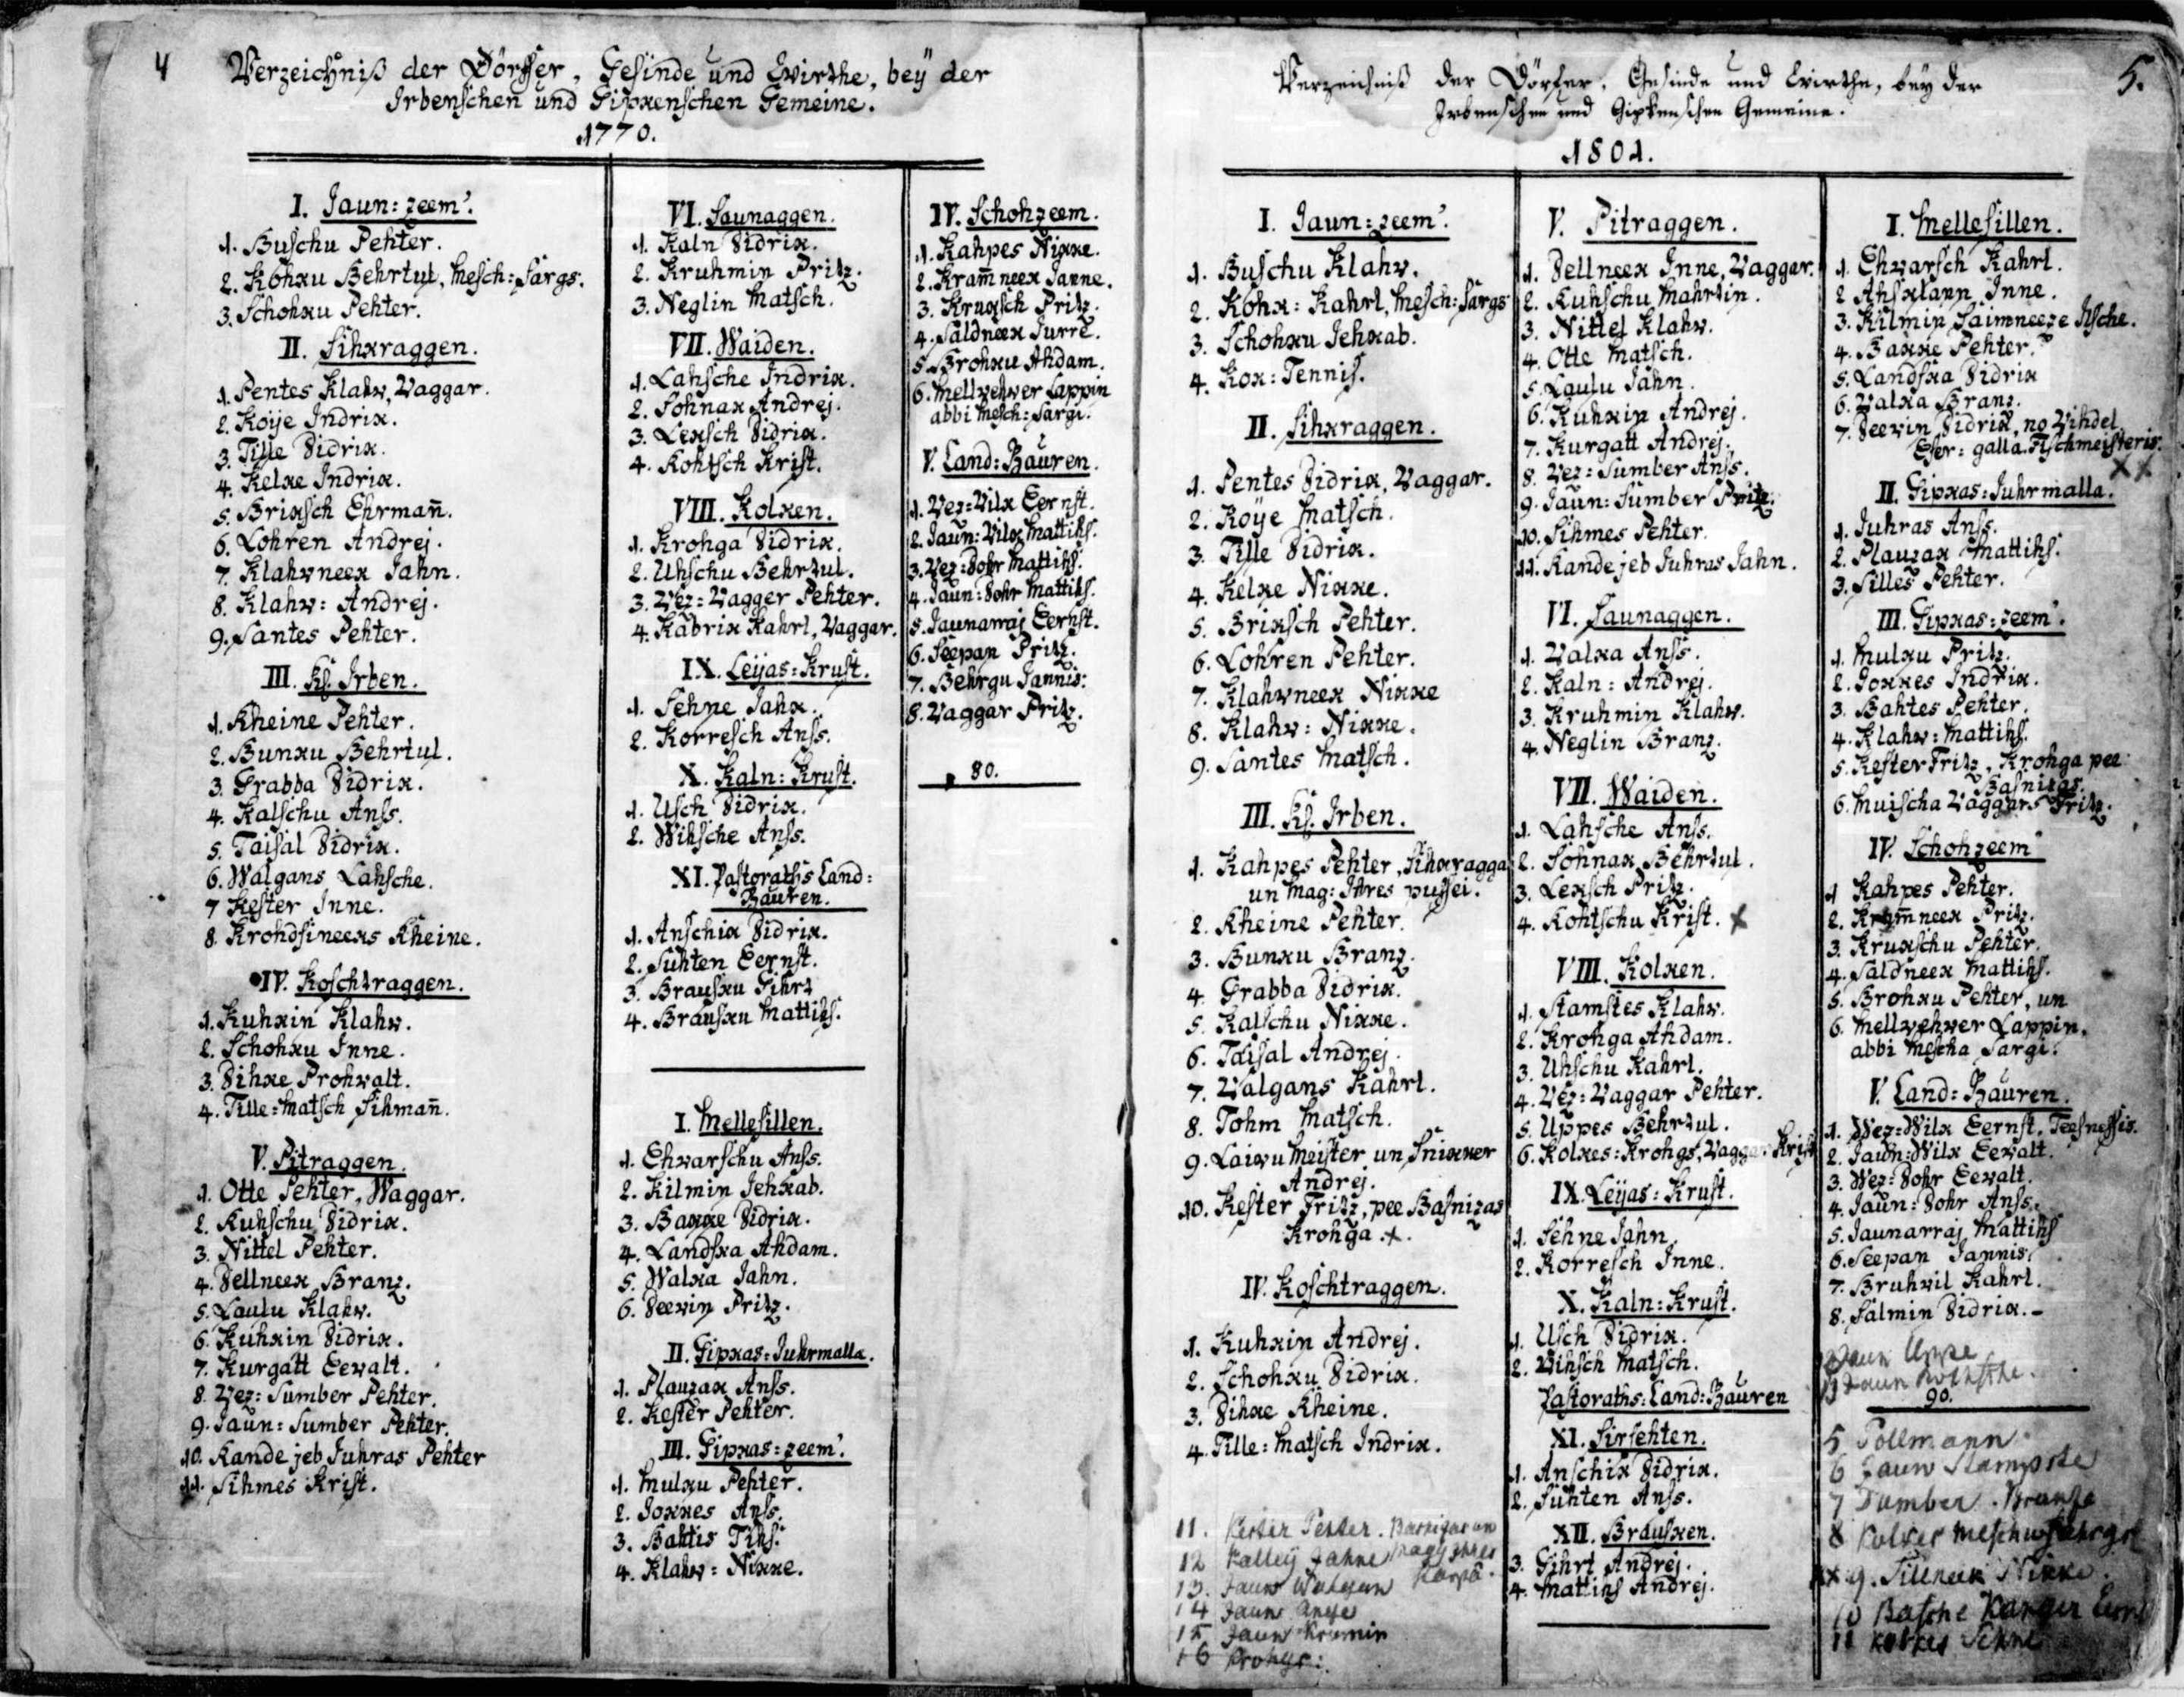 4
Verzeichniß der Dörffer, Gesinde und Wirthe, beÿ der
Irbenschen und Gipkenschen Gemeine.
1770.
I. Jaun=zeem'.
1. Buschu Pehter.
2. Kohku Behrtul, Mesch=sargs.
3. Schohku Pehter.
II. Sihkraggen.
1. Pentes Klahv, Vaggar.
2. Koije Indrik.
3. Tille Didrik.
4. Kelke Indrik.
5. Briksch Ehrmañ.
6. Lohren Andrej.
7. Klahvneek Jahn.
8. Klahv= Andrej.
9. Santes Pehter.
III. Kl. Irben.
1. Kheine Pehter.
2. Bunku Behrtul.
3. Grabba Didrik.
4. Kalschu Anss.
5. Taisal Didrik.
6. Walgans Lahsche.
7 Kester Inne.
8. Krohdsineeks Kheine.
IV. Koschtraggen.
1. Kuhkin Klahv.
2. Schohku Inne.
3. Dihke Prohwalt.
4. Tille=Matsch Sihmañ.
V. Pitraggen.
1. Otte Pehter, Waggar.
2. Kuhschu Didrik.
3. Nittel Pehter.
4. Dellneek Branz.
5. Laulu Klahv.
6. Kuhkin Didrik.
7. Kurgatt Eewalt.
8. Vez= Sumber Pehter.
9. Jaun= Sumber Pehter.
10. Kande jeb Juhras Pehter
11. Sihmes Krist.
VI. Saunaggen.
1. Kaln Didrik.
2. Kruhmin Pritz.
3. Neglin Matsch.
VII. Waiden.
1. Lahsche Indrik.
2. Sohnak Andrej.
3. Leksch Didrik.
4. Kohtsch Krist.
VIII. Kolken.
1. Krohga Didrik.
2. Uhschu Behrtul.
3. Vez= Vagger Pehter.
4. Kabrik Kahrl, Vaggar.
IX. Leijas=Krust.
1. Sehne Jahk.
2. Korresch Anss.
X. Kaln=Krust.
1. Usch Didrik.
2. Wihsche Anss.
XI. Pastoraths Land=
Bauren.
1. Anschik Didrik.
2. Suhten Eernst.
3. Brausku Gihrt
4. Brausku Mattihs.
I. Mellesillen.
1. Ehvarschu Anss.
2. Kilmin Jehkab.
3. Bakke Didrik.
4. Landska Ahdam.
5. Walka Jahn.
6. Deevin Pritz.
II. Gipkas=Juhrmalla.
1. Plauzak Anss.
2. Kester Pehter.
III. Gipkas=zeem'.
1. Mulku Pehter.
2. Jokkes Anss.
3. Bahtis Tihs.
4. Klahv= Nikke.
IV. Schohzeem.
1. Kahpes Nikke.
2. Kram̃neek Janne.
3. Kruksch Pritz.
4. Saldneek Jurre.
5. Brohku Ahdam.
6. Mellvehver Lappin
abbi Mesch=sargi.
V. Land=Bauren.
1. Vez=Vilk Eernst.
2. Jaun=Vilk Mattihs.
3. Vez=Dohr Mattihs.
4. Jaun=Dohr Mattihs.
5. Jaunarraj Eernst.
6. Seepan Pritz.
7. Behrgu Jannis.
8. Vaggar Pritz.
80.
5.
Verzeichniß der Dörfer, Gesinde und Wirthe, beÿ der
Irbenschen und Gipkenschen Gemeine.
1801.
I. Jaun=zeem'.
1. Buschu Klahv.
2. Kohk= Kahrl, Mesch=sargs
3. Schohku Jehkab.
4. Kok= Tennis.
II. Sihkraggen.
1. Pentes Didrik, Vaggar.
2. Koÿe Matsch.
3. Tille Didrik.
4. Kelke Nikke.
5. Briksch Pehter.
6. Lohren Pehter.
7. Klahvneek Nikke
8. Klahv= Nikke.
9. Santes Matsch.
III. Kl. Irben.
1. Kahpes Pehter, Sihkragga
un Mag= Ihres pussei.
2. Kheine Pehter.
3. Bunku Branz.
4. Grabba Didrik.
5. Kalschu Nikke.
6. Taisal Andrej.
7. Valgans Kahrl.
8. Tohm Matsch.
9. Laivu Meister un Snikker
Andrej.
10. Kester Fritz, pee Basnizas
Krohga +.
IV. Koschtraggen.
1. Kuhkin Andrej.
2. Schohku Didrik.
3. Dihke Kheine.
4. Tille=Matsch Indrik.
11. Kester Pehter.
12 Kalley Jahne
13. Jaun
14 Jaun
15 Jaun Krumin
16
V. Pitraggen.
1. Dellneek Inne, Vaggar.
2. Kuhschu Mahrtin.
3. Nittel Klahv.
4. Otte Matsch.
5. Laulu Jahn.
6. Kuhkin Andrej.
7. Kurgatt Andrej.
8. Vez= Sumber Anss.
9. Jaun= Sumber Pritz.
10. Sihmes Pehter.
11. Kande jeb Juhras Jahn.
VI. Saunaggen.
1. Valka Anss.
2. Kaln= Andrej.
3. Kruhmin Klahv.
4. Neglin Branz.
VII. Waiden.
1. Lahsche Anss.
2. Sohnak Behrtul.
3. Leksch Pritz.
4. Kohtschu Krist. x
VIII. Kolken.
1. Stamstes Klahv.
2. Krohga Ahdam.
3. Uhschu Kahrl.
4. Vez= Vaggar Pehter.
5. Uppes Behrtul.
6. Kolkes=Krohgs, Vaggar Krist
IX. Leijas=Krust.
1. Sehne Jahn.
2. Korresch Inne.
X. Kaln=Krust.
1. Usch Didrik.
2. Vihsch Matsch.
Pastoraths=Land=Bauren
XI. Sirsehten.
1. Anschik Didrik.
2. Suhten Anss.
XII. Brausken.
3. Gihrt Andrej.
4. Mattihs Andrej.
I. Mellesillen.
1. Ehvarsch Kahrl.
2 Ahsklann Inne.
3. Kilmin Saimneeze Ilsche.
4. Bakke Pehter.
5. Landska Didrik
6. Valka Branz.
7. Deevin Didrik, no Vihdel
Eser= galla. Fischmeisteris.
x x
II. Gipkas=Juhrmalla.
1. Juhras Anss.
2. Plauzak Mattihs.
3. Silles Pehter.
III. Gipkas=zeem'.
1. Mulku Pritz.
2. Jokkes Indrik.
3. Bahtes Pehter.
4. Klahv= Mattihs.
5. Kester Fritz, Krohga pee
Basnizas.
6. Muischa Vaggars Fritz.
IV. Schohzeem'
1 Kahpes Pehter.
2. Kram̃neek Pritz.
3. Krukschu Pehter.
4. Saldneek Mattihs.
5. Brohku Pehter, un
6. Mellvehver Lappin,
abbi Mescha Sargi.
V. Land=Bauren.
1. Wez=Wilk Eernst, Teesnessis.
2. Jaun=Wilk Eewalt.
3. Wez=Dohr Eewalt.
4. Jaun=Dohr Anss.
5. Jaunarraj Mattihs
6. Seepan Jannis.
7. Bruhvil Kahrl.
8. Salmin Didrik.
Jaun Uppe
Jaun
90.
5 Pollmann
6 Jaun Stampste
7 Dumber
8 Kolkes Meschu
x x 9. Silleneek Nikke.
10 Basche
11 Kolkes Sehne